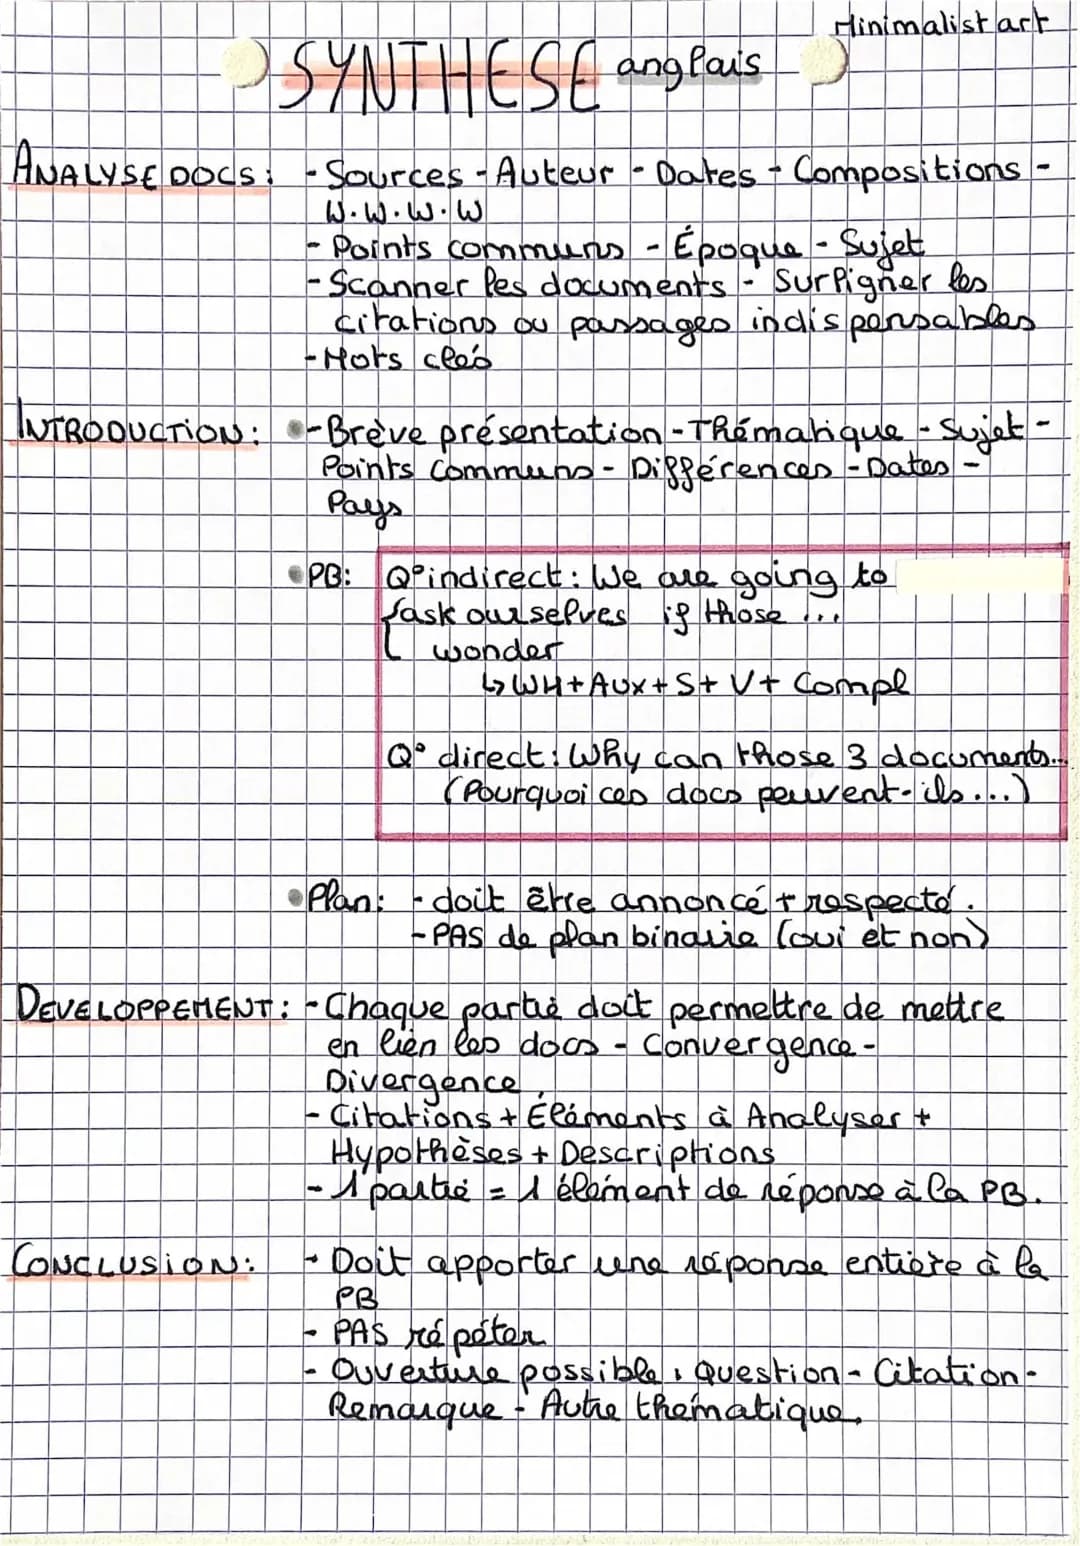 Minimalist art
SYNTHESE anglais
ANALYSE DOCS : - Sources - Auteur - Dates - Compositions -
W.W.W.W
- Points communs - Époque - Sujet
- Scanner les documents - Surligner les
citations ou passages indispensables
- Mots clés
INTRODUCTION : - Brève présentation - Thématique - Sujet -
Points Communs - Différences - Dates -
Pays
PB: Q° indirect : We are going to
ask ourselves if those ...
wonder
↳ WH + Aux + S + V + Compl
Q° direct : Why can those 3 documents...
(Pourquoi ces docs peuvent-ils ...)
Plan : - doit être annoncé + respecté.
- PAS de plan binaire (oui et non)
DEVELOPPEMENT : - Chaque partie doit permettre de mettre
en lien les docs - Convergence -
Divergence
- Citations + Éléments à Analyser +
Hypothèses + Descriptions
- 1 partie = 1 élément de réponse à la PB.
CONCLUSION : - Doit apporter une réponse entière à la
PB
- PAS répéter
- Ouverture possible : Question - Citation -
Remarque - Autre thématique.